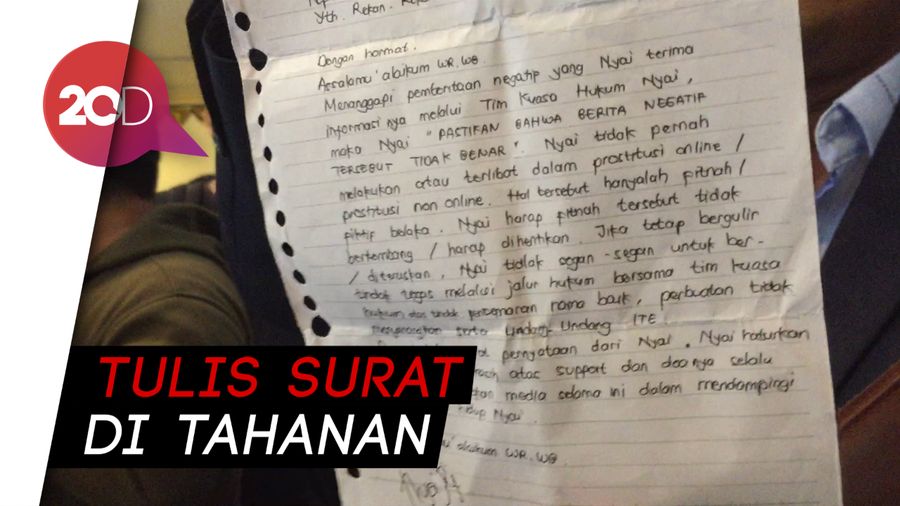 20D
Yth. Rekan
Dengan hormat.
Assalamu'alaikum WR.WB.
Menanggapi pemberitaan negatip yang Nyai terima
informasi nya melalui Tim Kuasa Hukum Nyai,
maka Nyai "PASTIKAN BAHWA BERITA NEGATIF
TERSEBUT TIDAK BENAR". Nyai tidak pernah
melakukan atau terlibat dalam prostitusi online /
prostitusi non online. Hal tersebut hanyalah fitnah /
fiktif belaka. Nyai harap fitnah tersebut tidak
berkembang / harap dihentikan. Jika tetap bergulir
/ diteruskan, Nyai tidak segan-segan untuk ber-
tindak tegas melalui jalur hukum bersama tim kuasa
hukum pencemaran nama baik, perbuatan tidak
menyenangkan serta Undang-Undang ITE.
pernyataan dari Nyai. Nyai haturkan
atas support dan doanya selalu
media selama ini dalam mendampingi
hidup Nyai.
alaikum WR.WB.
TULIS SURAT
DI TAHANAN